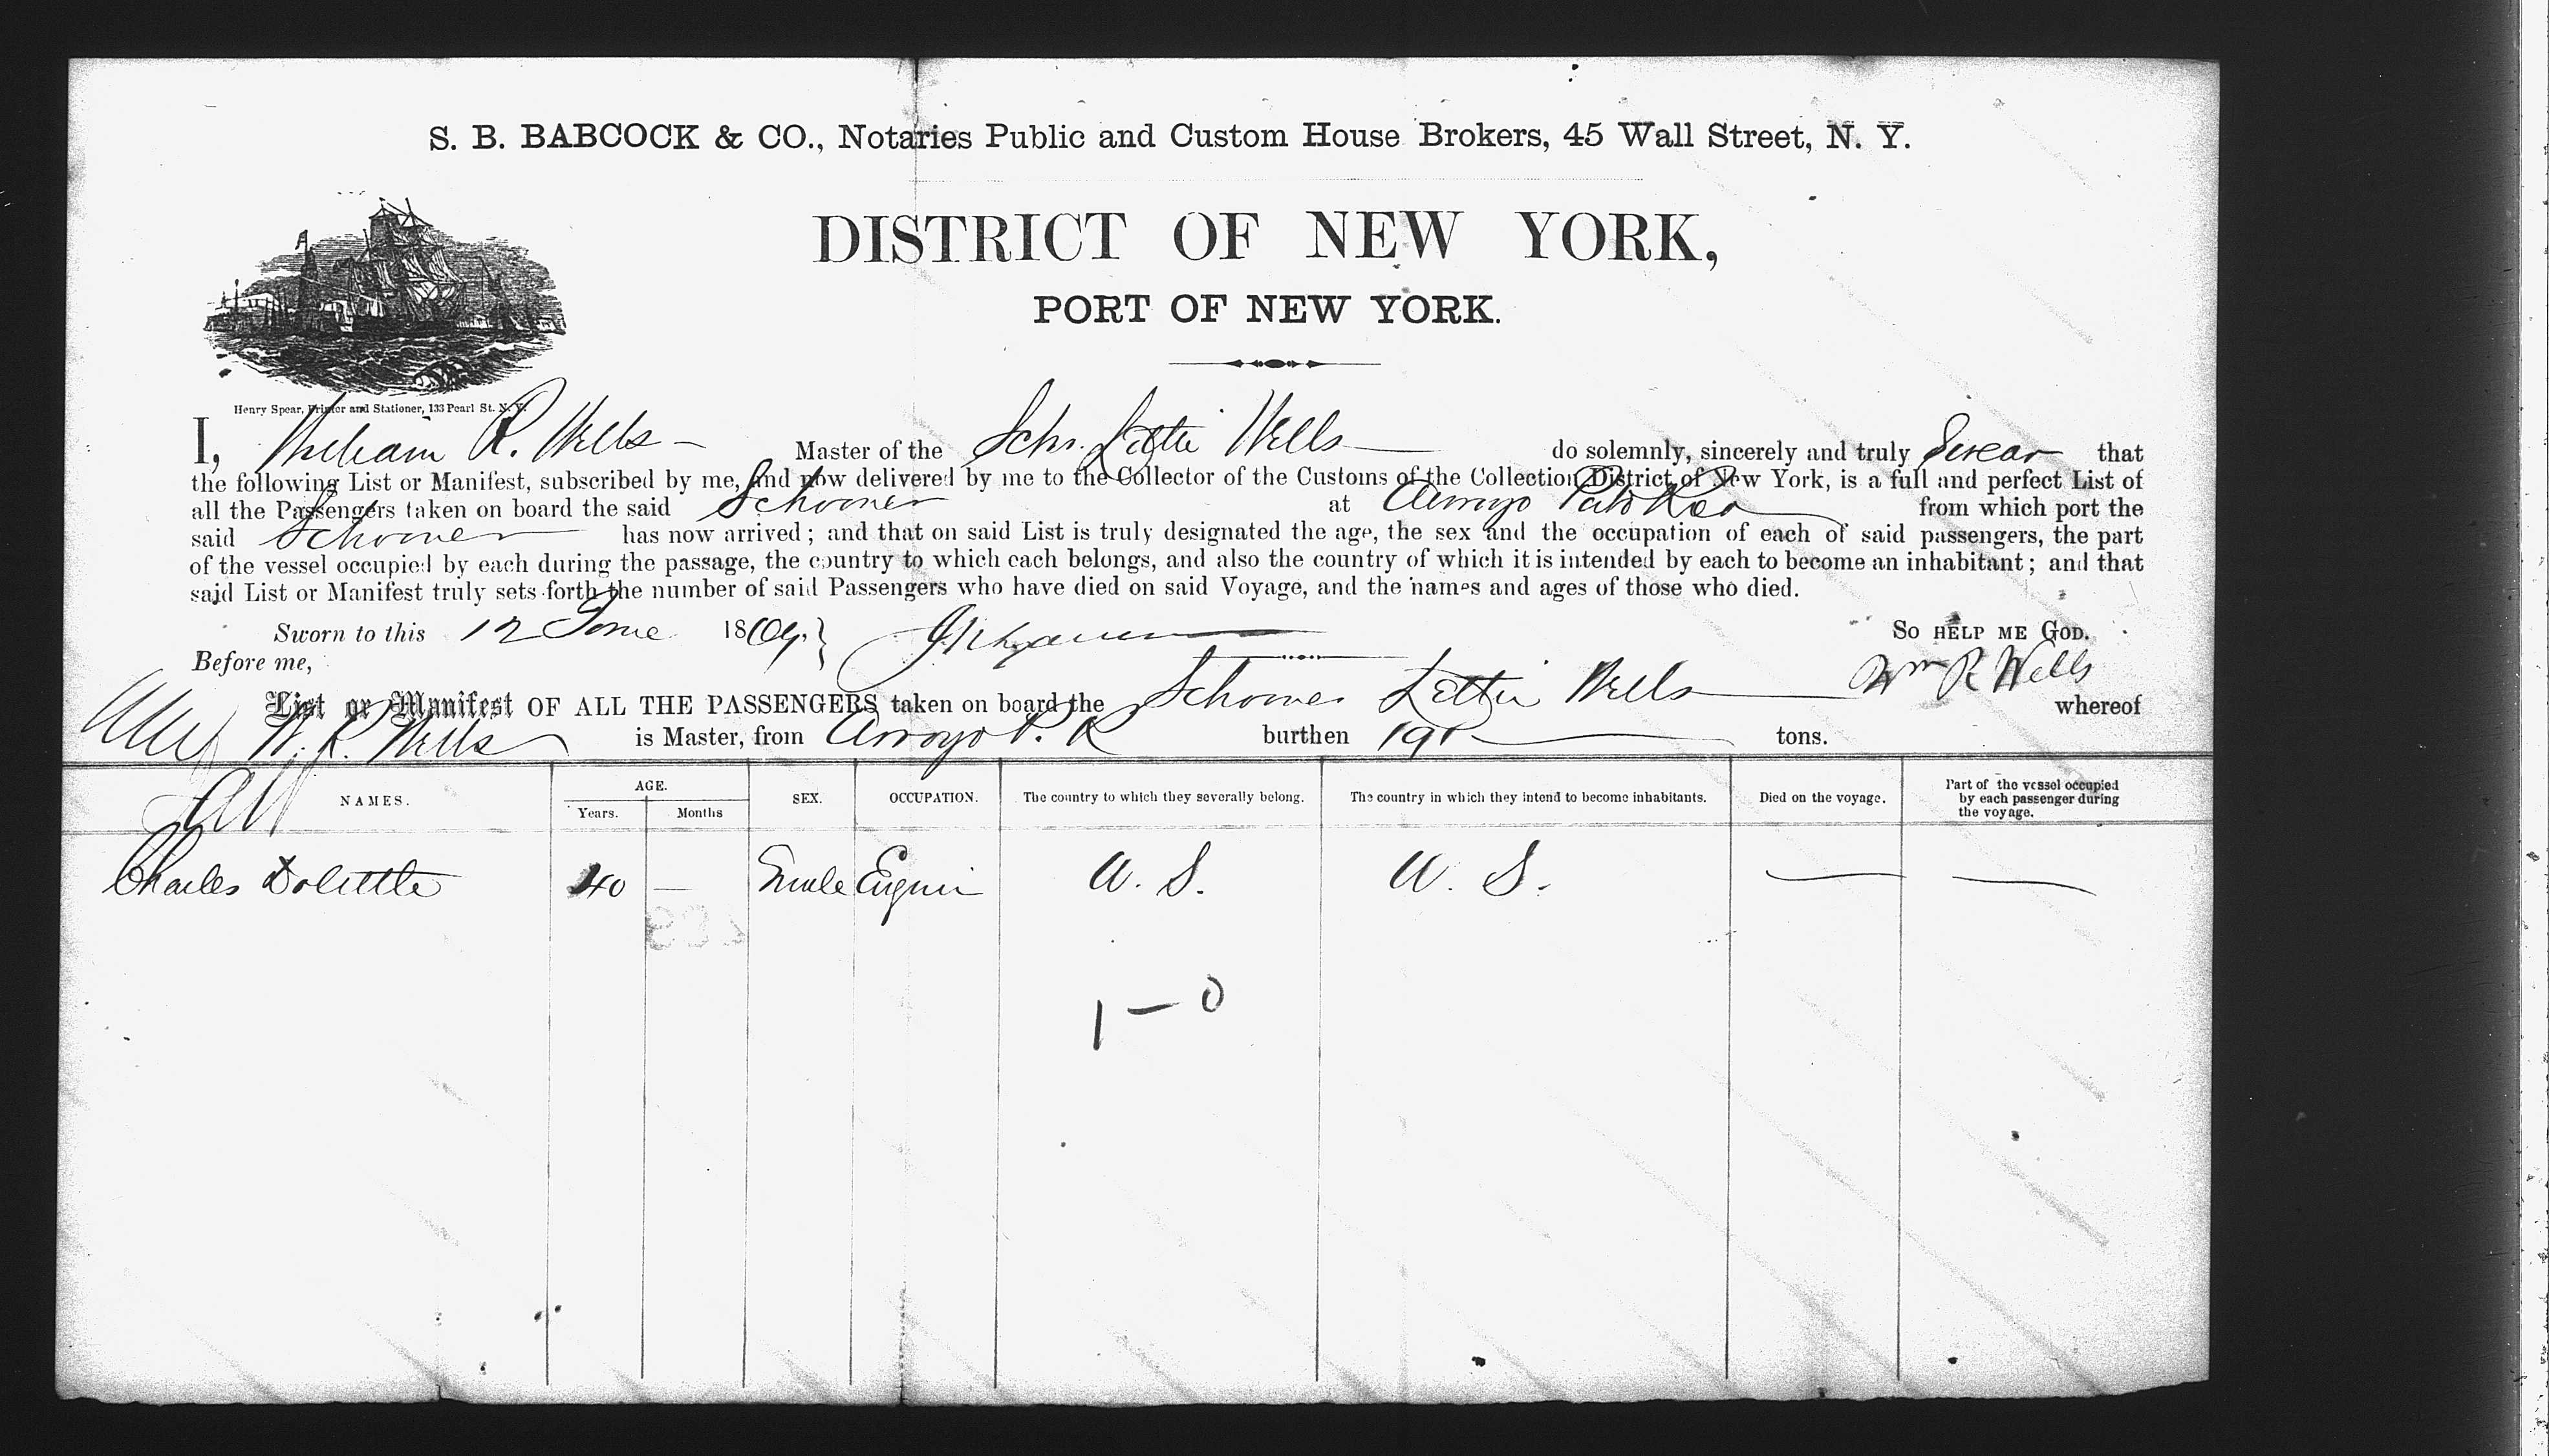 S. B. BABCOCK & CO., Notaries Public and Custom House Brokers, 45 Wall Street, N. Y.
DISTRICT OF NEW YORK,
PORT OF NEW YORK.
Henry Spear, Printer and Stationer, 133 Pearl St. N. Y.
I, William R. Wells Master of the Schr. Lettie Wells do solemnly, sincerely and truly Swear that
the following List or Manifest, subscribed by me, and now delivered by me to the Collector of the Customs of the Collection District of New York, is a full and perfect List of
all the Passengers taken on board the said Schooner at Arroyo Porto Rico from which port the
said Schooner has now arrived; and that on said List is truly designated the age, the sex and the occupation of each of said passengers, the part
of the vessel occupied by each during the passage, the country to which each belongs, and also the country of which it is intended by each to become an inhabitant; and that
said List or Manifest truly sets forth the number of said Passengers who have died on said Voyage, and the names and ages of those who died.
Sworn to this 12 June 1869. SO HELP ME GOD.
Before me, Wm R Wells
List or Manifest OF ALL THE PASSENGERS taken on board the Schooner Lettie Wells whereof
W. R. Wells is Master, from Arroyo P. R burthen tons.
NAMES. AGE. Years. Months SEX. OCCUPATION. The country to which they severally belong. The country in which they intend to become inhabitants. Died on the voyage. Part of the vessel occupied by each passenger during the voyage.
Charles Dolittle 40 — male Engin U. S. U. S. — —
1 — 0